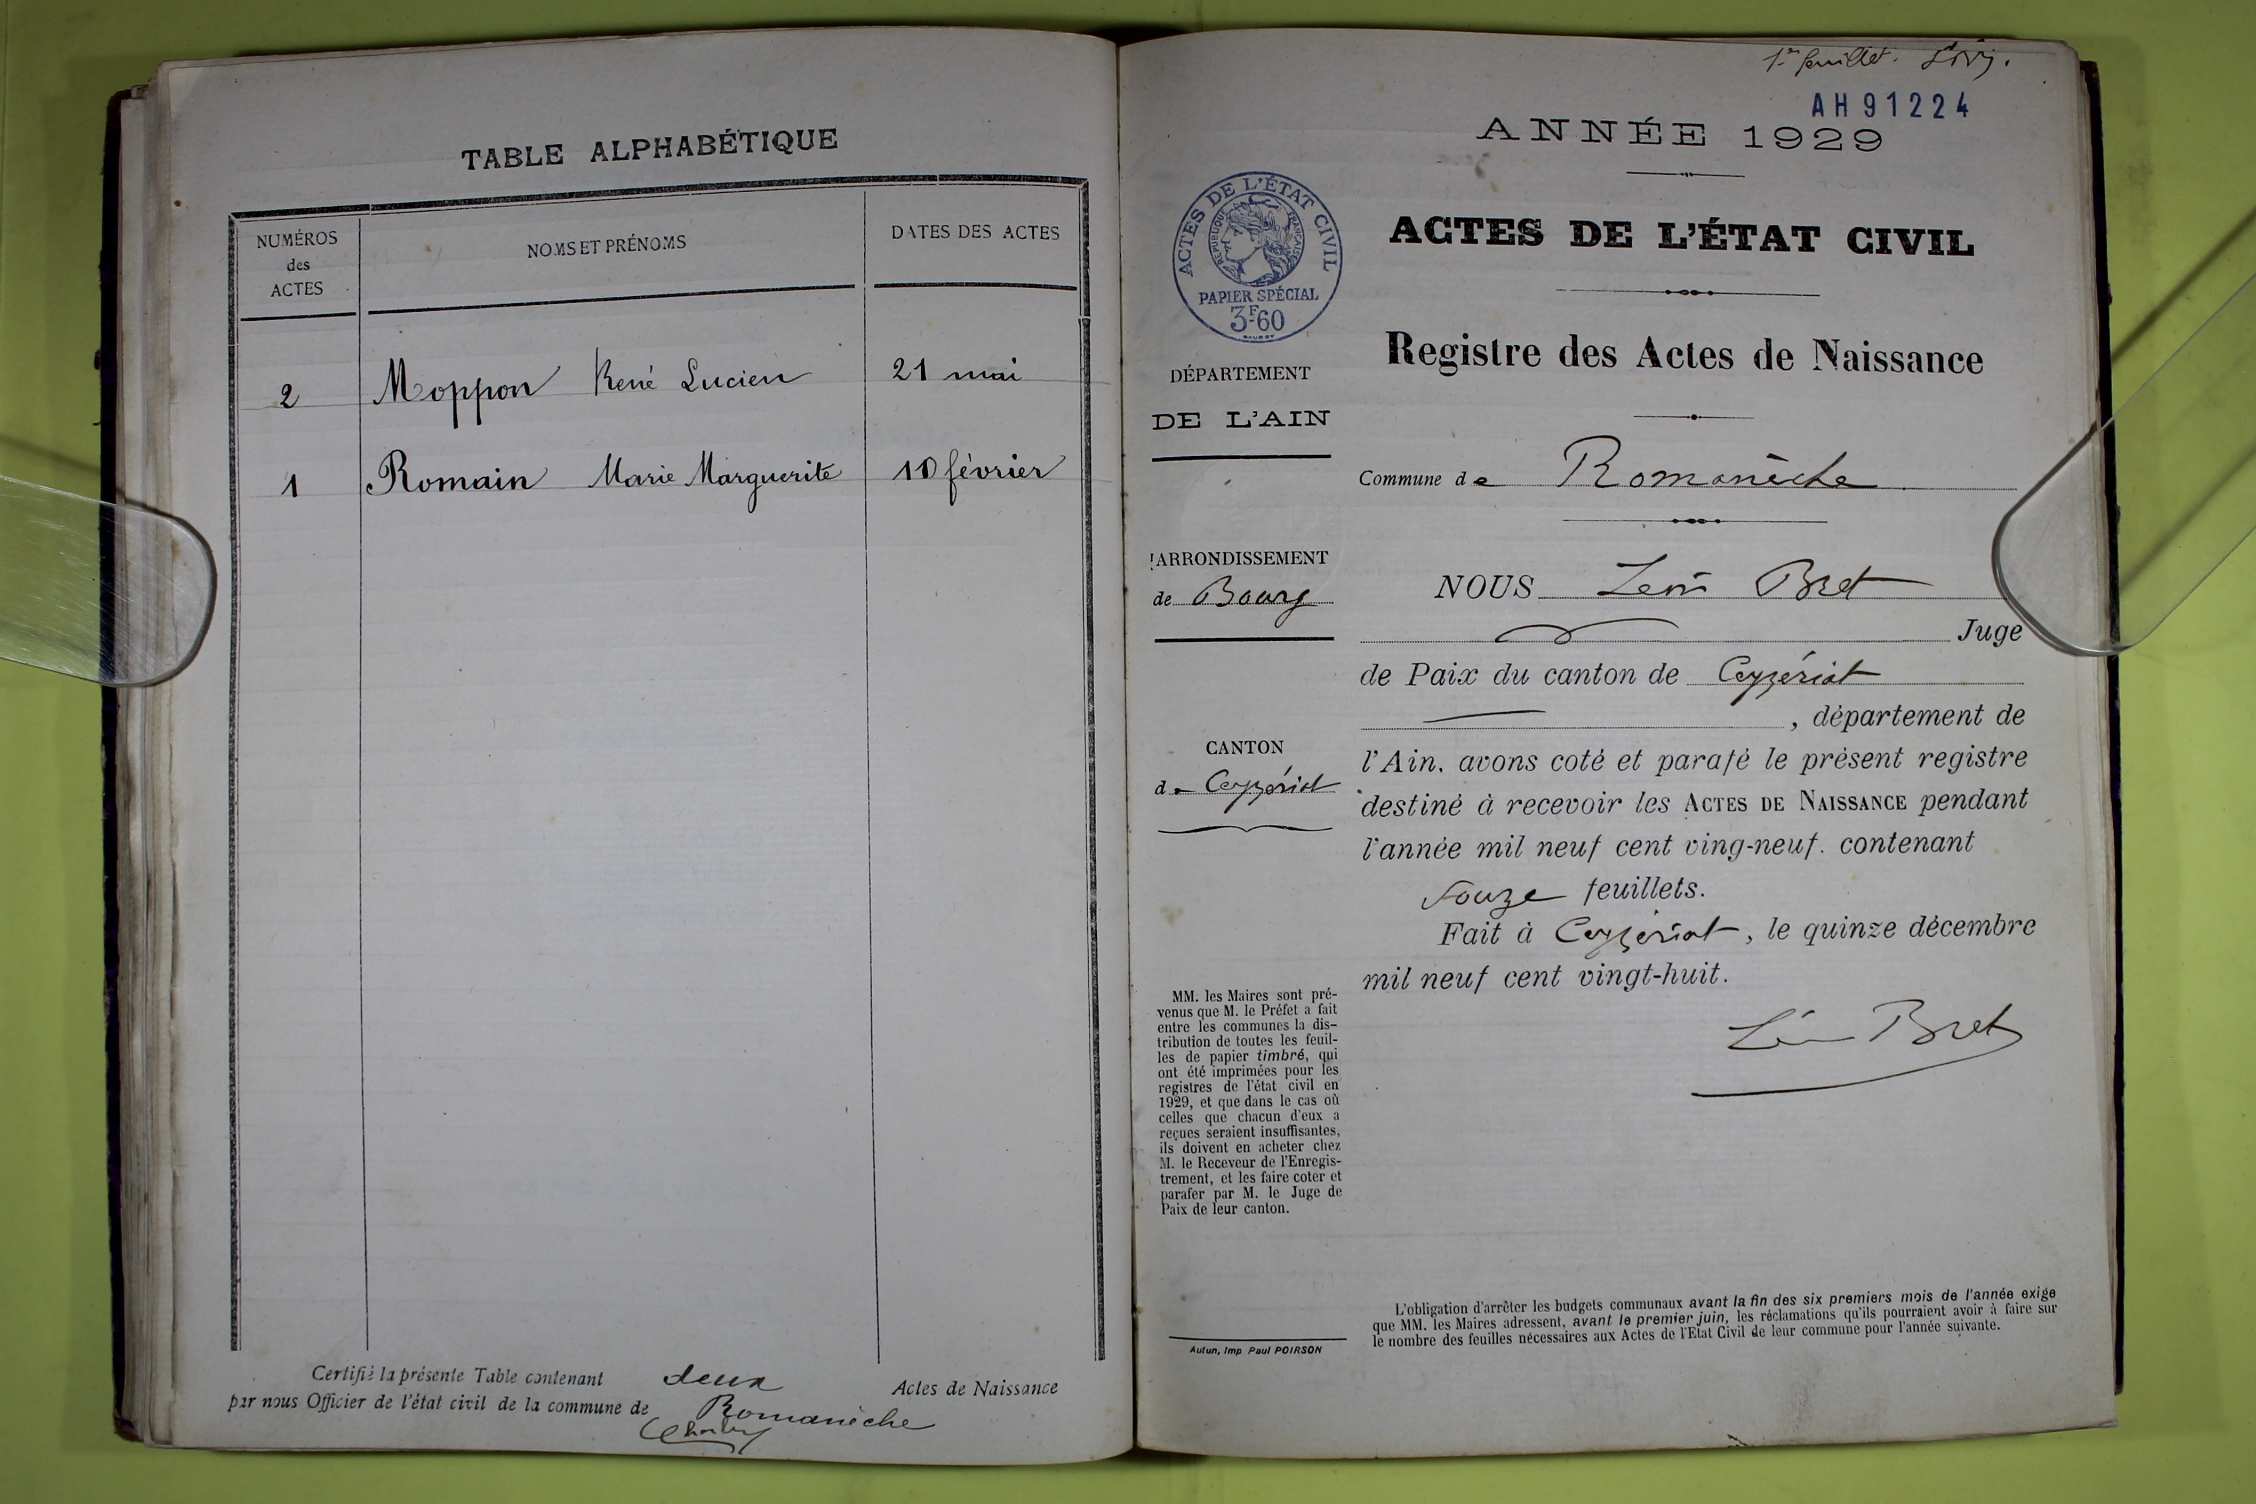 TABLE ALPHABÉTIQUE
NUMÉROS
des
ACTES
NOMS ET PRÉNOMS
DATES DES ACTES
2 Moppon René Lucien 21 mai
1 Romain Marie Marguerite 10 février
Certifié la présente Table contenant deux Actes de Naissance
par nous Officier de l'état civil de la commune de Romanèche
1er feuillet.
AH91224
ANNÉE 1929
ACTES DE L'ÉTAT CIVIL
RÉPUBLIQUE FRANÇAISE
PAPIER SPÉCIAL
3F60
ACTES DE L'ÉTAT CIVIL
Registre des Actes de Naissance
DÉPARTEMENT
DE L'AIN
Commune de Romanèche
ARRONDISSEMENT
de Bourg
NOUS Léon Bret
Juge
de Paix du canton de Ceyzériat
, département de
CANTON
de Ceyzériat
l'Ain, avons coté et parafé le présent registre
destiné à recevoir les ACTES DE NAISSANCE pendant
l'année mil neuf cent ving-neuf. contenant
douze feuillets.
Fait à Ceyzériat, le quinze décembre
mil neuf cent vingt-huit.
Léon Bret
MM. les Maires sont pré-
venus que M. le Préfet a fait
entre les communes la dis-
tribution de toutes les feuil-
les de papier timbré, qui
ont été imprimées pour les
registres de l'état civil en
1929, et que dans le cas où
celles que chacun d'eux a
reçues seraient insuffisantes,
ils doivent en acheter chez
M. le Receveur de l'Enregis-
trement, et les faire coter et
parafer par M. le Juge de
Paix de leur canton.
Autun, Imp Paul POIRSON
L'obligation d'arrêter les budgets communaux avant la fin des six premiers mois de l'année exige
que MM. les Maires adressent, avant le premier juin, les réclamations qu'ils pourraient avoir à faire sur
le nombre des feuilles nécessaires aux Actes de l'Etat Civil de leur commune pour l'année suivante.